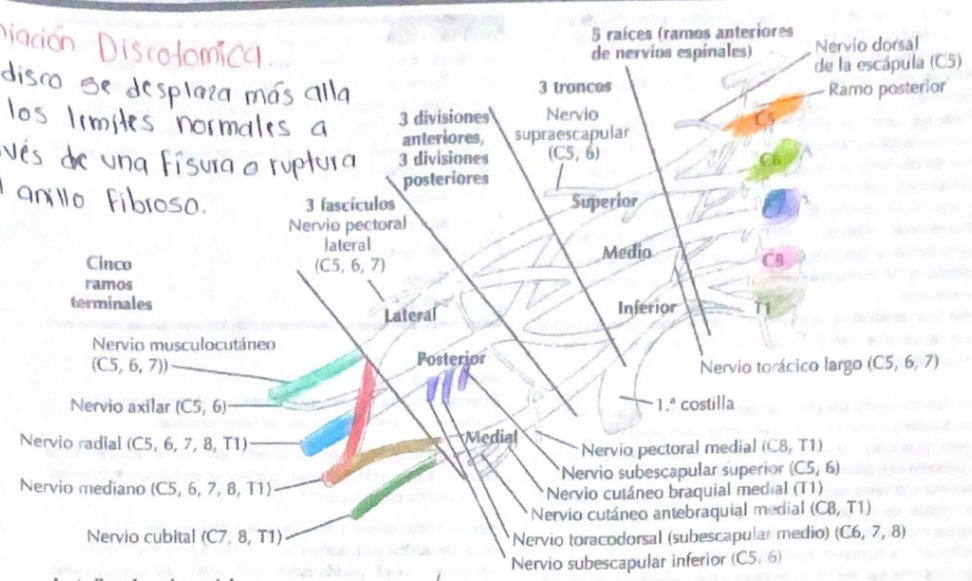 Discotomica
disco se desplaza más alla
los limites normales a
de una fisura o ruptura
anillo Fibroso.
5 raíces (ramos anteriores
de nervios espinales)
Nervio dorsal
de la escápula (C5)
Ramo posterior
3 troncos
Nervio
supraescapular
(C5, 6)
3 divisiones
anteriores,
3 divisiones
posteriores
3 fascículos
Nervio pectoral
lateral
(C5, 6, 7)
Cinco
ramos
terminales
C5
C6
C8
T1
Superior
Medio
Inferior
Lateral
Posterior
Medial
Nervio musculocutáneo
(C5, 6, 7))
Nervio axilar (C5, 6)
Nervio radial (C5, 6, 7, 8, T1)
Nervio mediano (C5, 6, 7, 8, T1)
Nervio cubital (C7, 8, T1)
Nervio torácico largo (C5, 6, 7)
1.ª costilla
Nervio pectoral medial (C8, T1)
Nervio subescapular superior (C5, 6)
Nervio cutáneo braquial medial (T1)
Nervio cutáneo antebraquial medial (C8, T1)
Nervio toracodorsal (subescapular medio) (C6, 7, 8)
Nervio subescapular inferior (C5, 6)